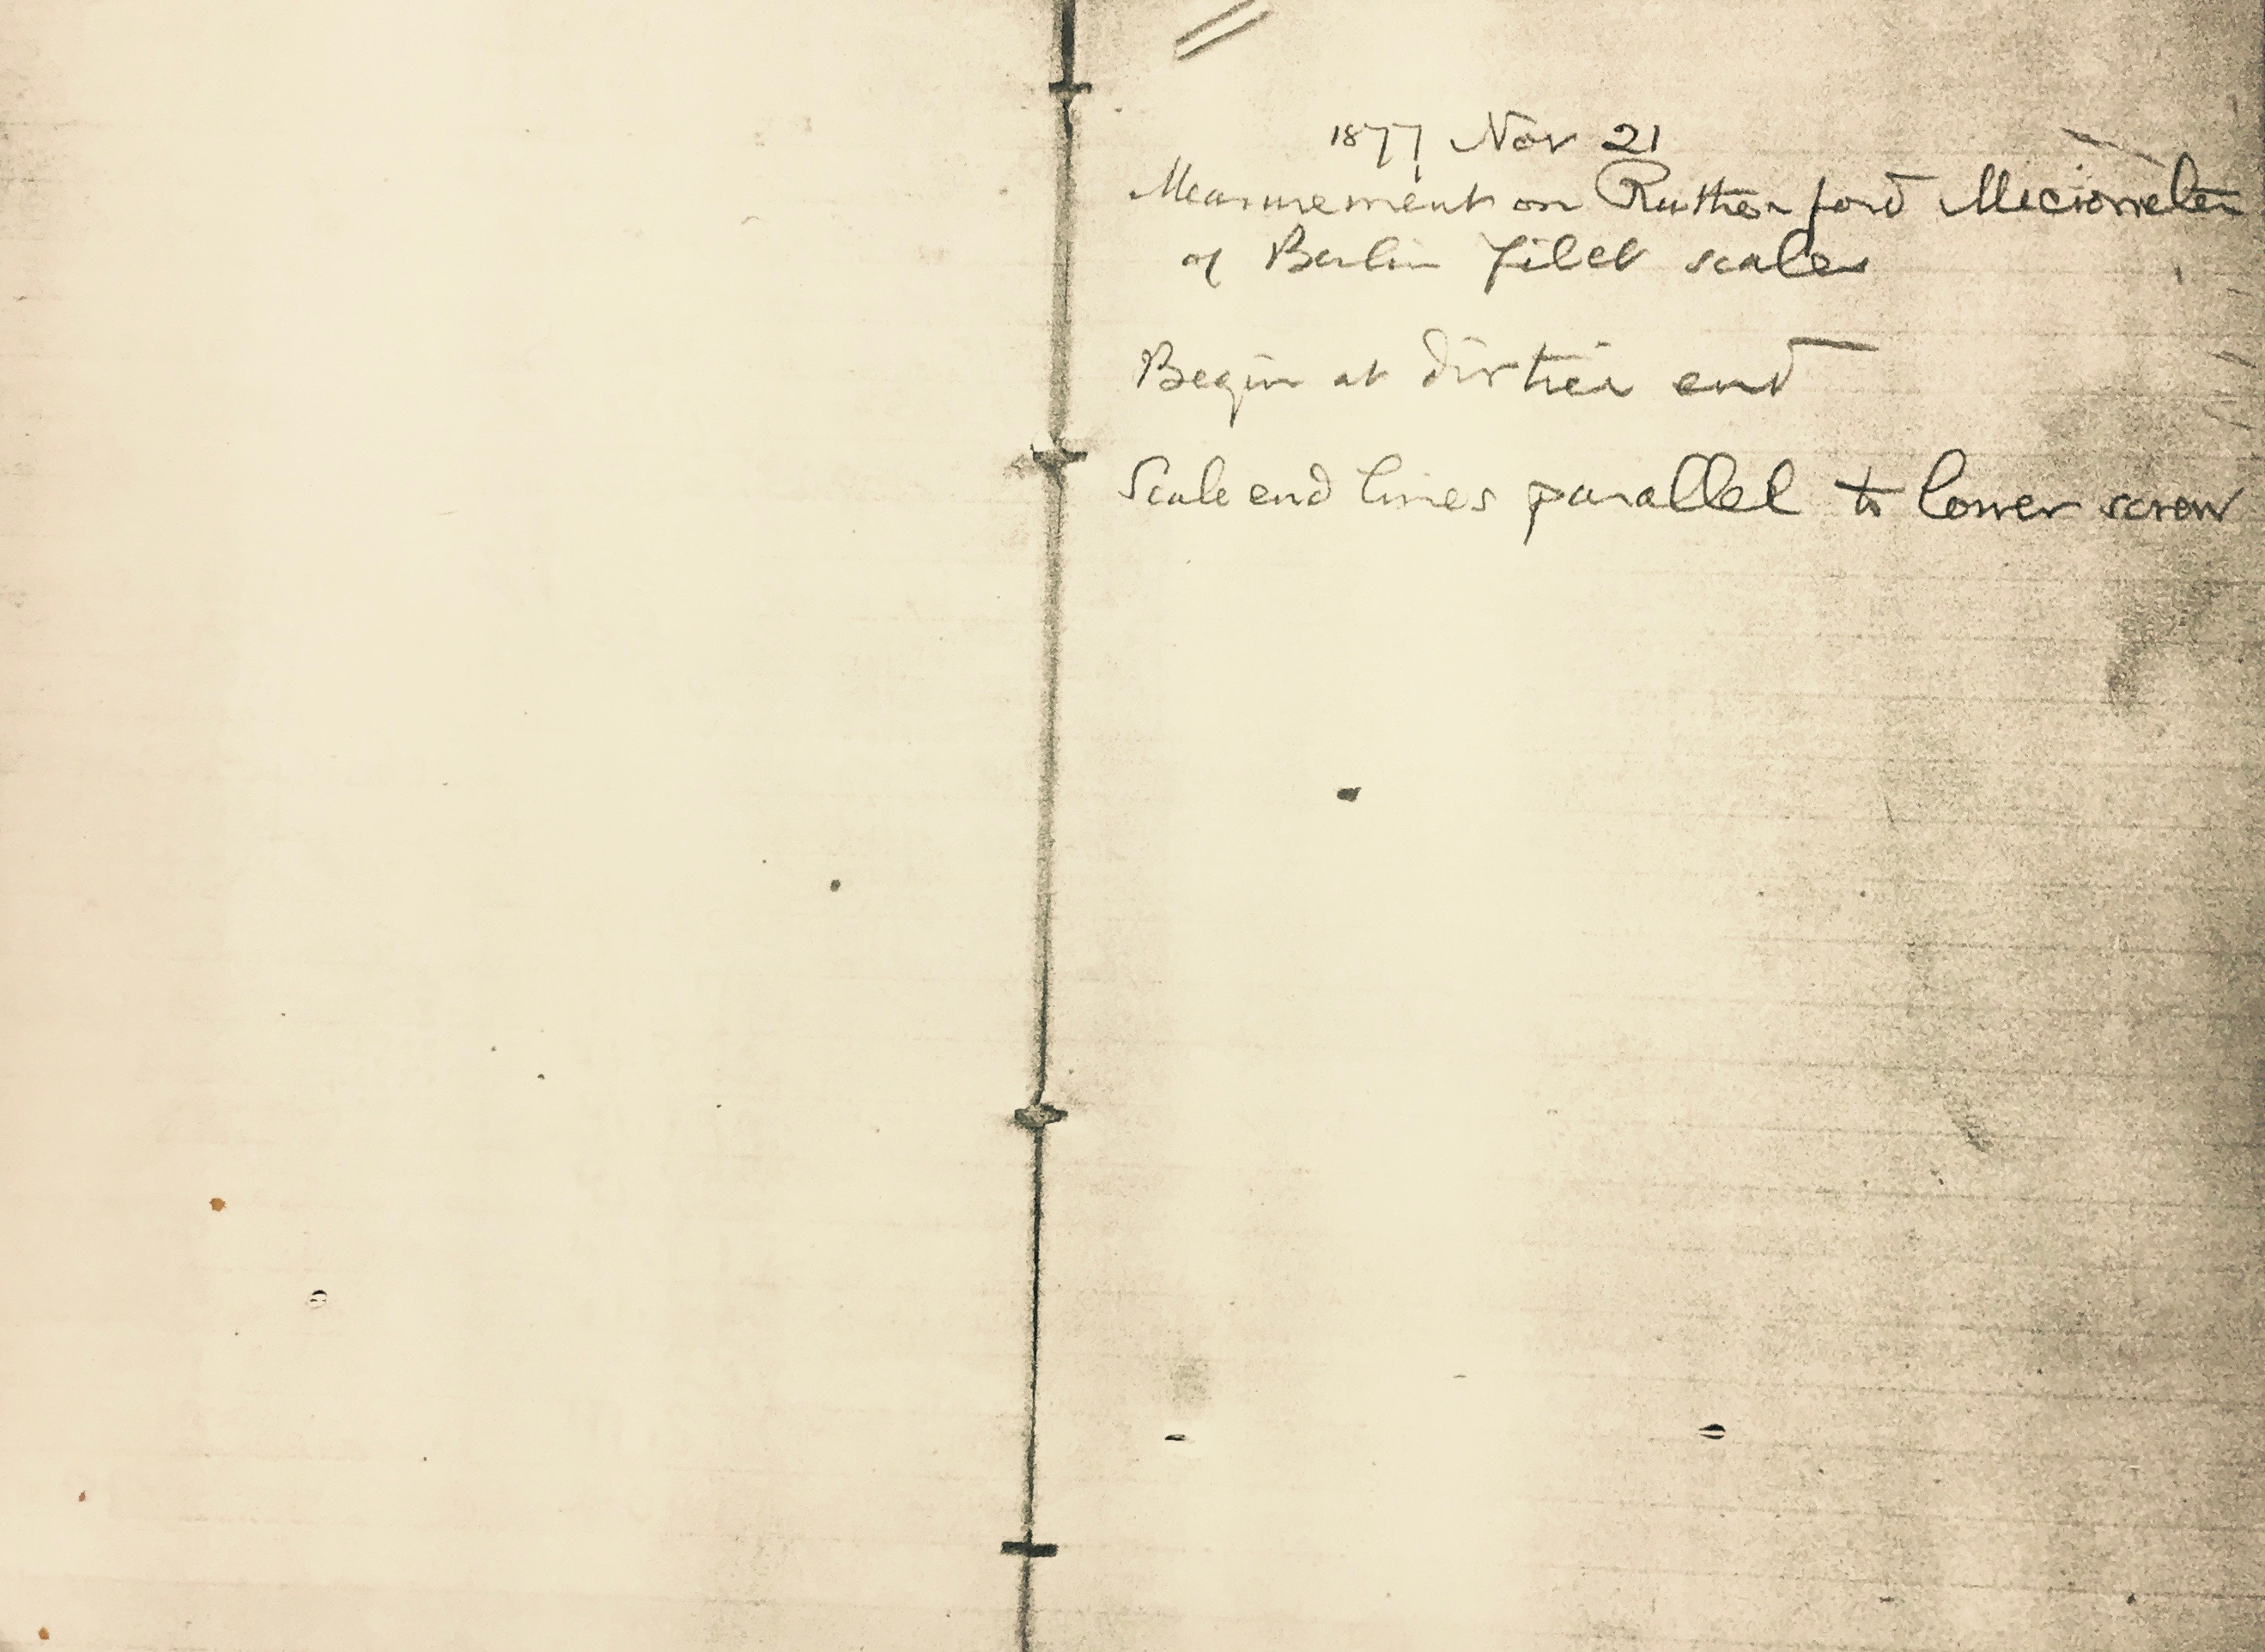 1877 Nov 21
Measurement on Rutherford Micrometer
of Berlin filet scales
Begin at dirtier end
Scale end lines parallel to lower screw